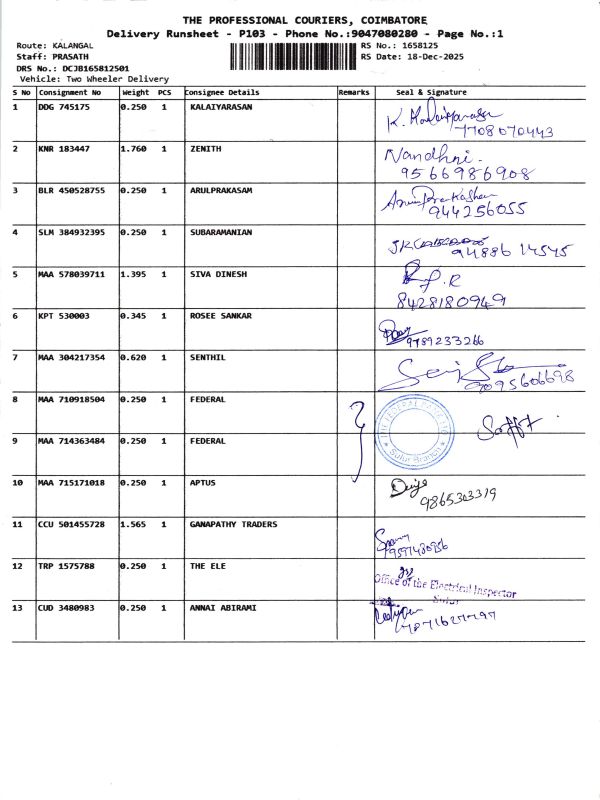 THE PROFESSIONAL COURIERS, COIMBATORE
Delivery Runsheet - P103 - Phone No.:9047080280 - Page No.:1
Route: KALANGAL RS No.: 1658125
Staff: PRASATH RS Date: 18-Dec-2025
DRS No.: DCJB165812501
Vehicle: Two Wheeler Delivery
S No Consignment No Weight PCS Consignee Details Remarks Seal & Signature
1 DDG 745175 0.250 1 KALAIYARASAN
7708070443
2 KNR 183447 1.760 1 ZENITH Nandhni.
9566986908
3 BLR 450528755 0.250 1 ARULPRAKASAM
944256055
4 SLM 384932395 0.250 1 SUBARAMANIAN
94886 14545
5 MAA 578039711 1.395 1 SIVA DINESH
8428180949
6 KPT 530003 0.345 1 ROSEE SANKAR
9789233266
7 MAA 304217354 0.620 1 SENTHIL
9095606698
8 MAA 710918504 0.250 1 FEDERAL
9 MAA 714363484 0.250 1 FEDERAL
THE FEDERAL BANK LTD
Sulur Branch
10 MAA 715171018 0.250 1 APTUS
9865303319
11 CCU 501455728 1.565 1 GANAPATHY TRADERS
12 TRP 1575788 0.250 1 THE ELE
Office of the Electrical Inspector
Sulur
13 CUD 3480983 0.250 1 ANNAI ABIRAMI